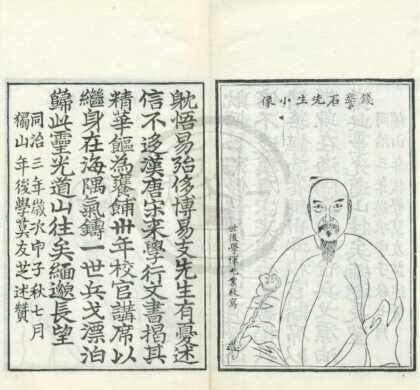 錢警石先生小像
世後學惲光業敬寫
躭悟易殆侈博易支先生有憂述
信不迻漢唐宋來學行文書揭其
精華餾為饔餔卅年校官講席以
繼身在海隅氣鑄一世兵戈漂泊
歸此靈光道山往矣緬邈長望
同治三年歲次甲子秋七月
獨山年後學莫友芝述贊